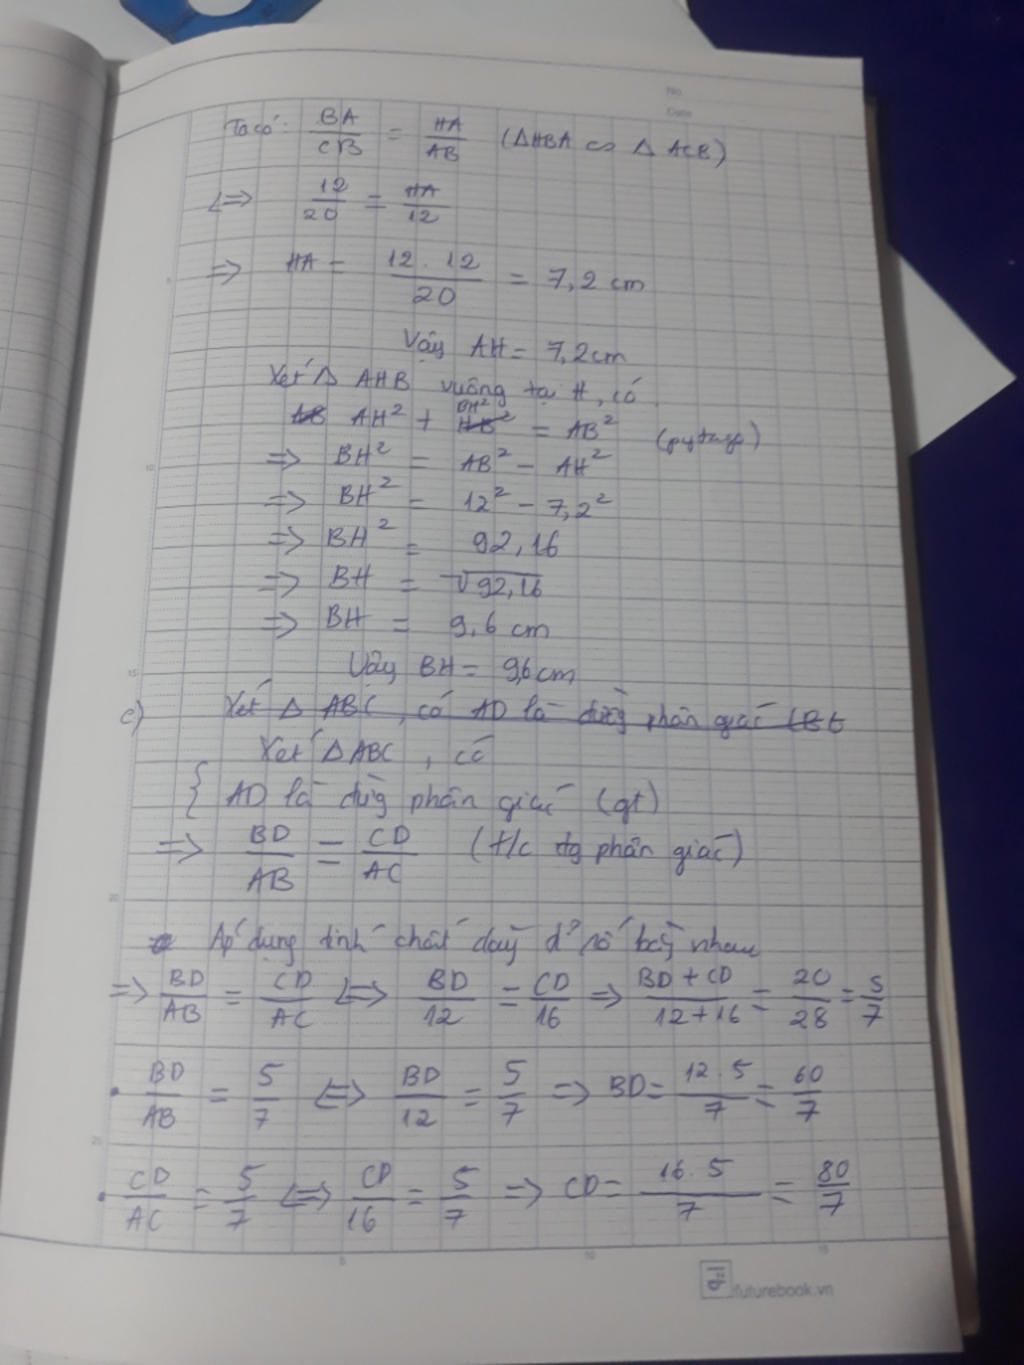 No.
Date
Ta có: BA/CB = HA/AB (ΔHBA ∽ Δ ACB)
<=> 12/20 = HA/12
=> HA = 12.12/20 = 7,2 cm
Vậy AH = 7,2cm
Xét Δ AHB vuông tại H, có
AH² + BH² = AB² (pytago)
=> BH² = AB² - AH²
=> BH² = 12² - 7,2²
=> BH² = 92,16
=> BH = √92,16
=> BH = 9,6 cm
Vậy BH = 9,6cm
c) Xét Δ ABC, có AD là đường phân giác
Xét ΔABC, có
{ AD là đường phân giác (gt)
=> BD/AB = CD/AC (t/c đg phân giác)
Áp dụng tính chất dãy tỉ số bằng nhau
=> BD/AB = CD/AC <=> BD/12 = CD/16 => BD + CD/12+16 = 20/28 = 5/7
• BD/AB = 5/7 <=> BD/12 = 5/7 => BD = 12.5/7 = 60/7
• CD/AC = 5/7 <=> CD/16 = 5/7 => CD = 16.5/7 = 80/7
5 10 15
futurebook.vn